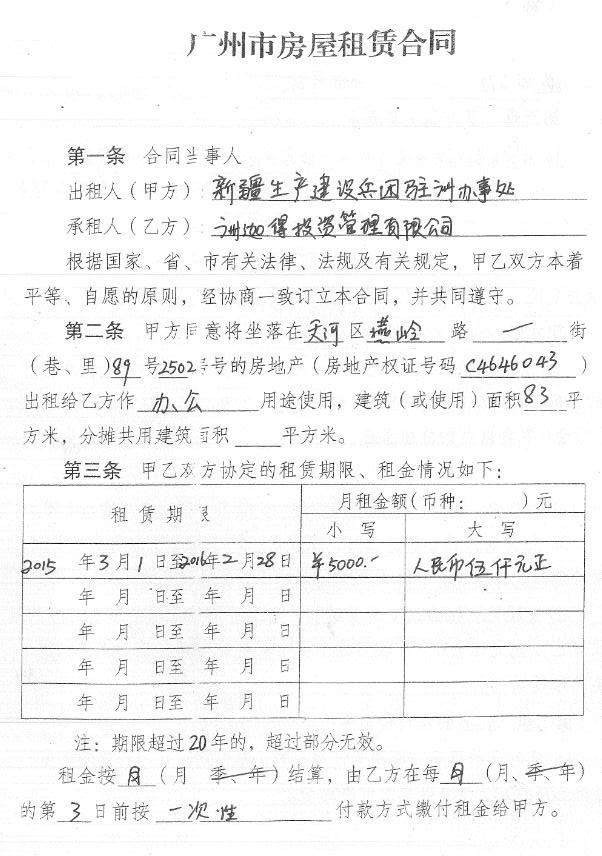 广州市房屋租赁合同
第一条 合同当事人
出租人（甲方）：新疆生产建设兵团驻洲办事处
承租人（乙方）：洲迦得投资管理有限公司
根据国家、省、市有关法律、法规及有关规定，甲乙双方本着
平等、自愿的原则，经协商一致订立本合同，并共同遵守。
第二条 甲方同意将坐落在天河区燕岭路一街
（巷、里）89号2502号的房地产（房地产权证号码C4646043）
出租给乙方作办公用途使用，建筑（或使用）面积83平
方米，分摊共用建筑面积 平方米。
第三条 甲乙双方协定的租赁期限、租金情况如下：
租赁期限 月租金额（币种： ）元
小写 大写
2015年3月1日至2016年2月28日 ¥5000.- 人民币伍仟元正
年 月 日至 年 月 日
年 月 日至 年 月 日
年 月 日至 年 月 日
年 月 日至 年 月 日
注：期限超过20年的，超过部分无效。
租金按月（月 季、年）结算，由乙方在每月（月、季、年）
的第3日前按一次性付款方式缴付租金给甲方。